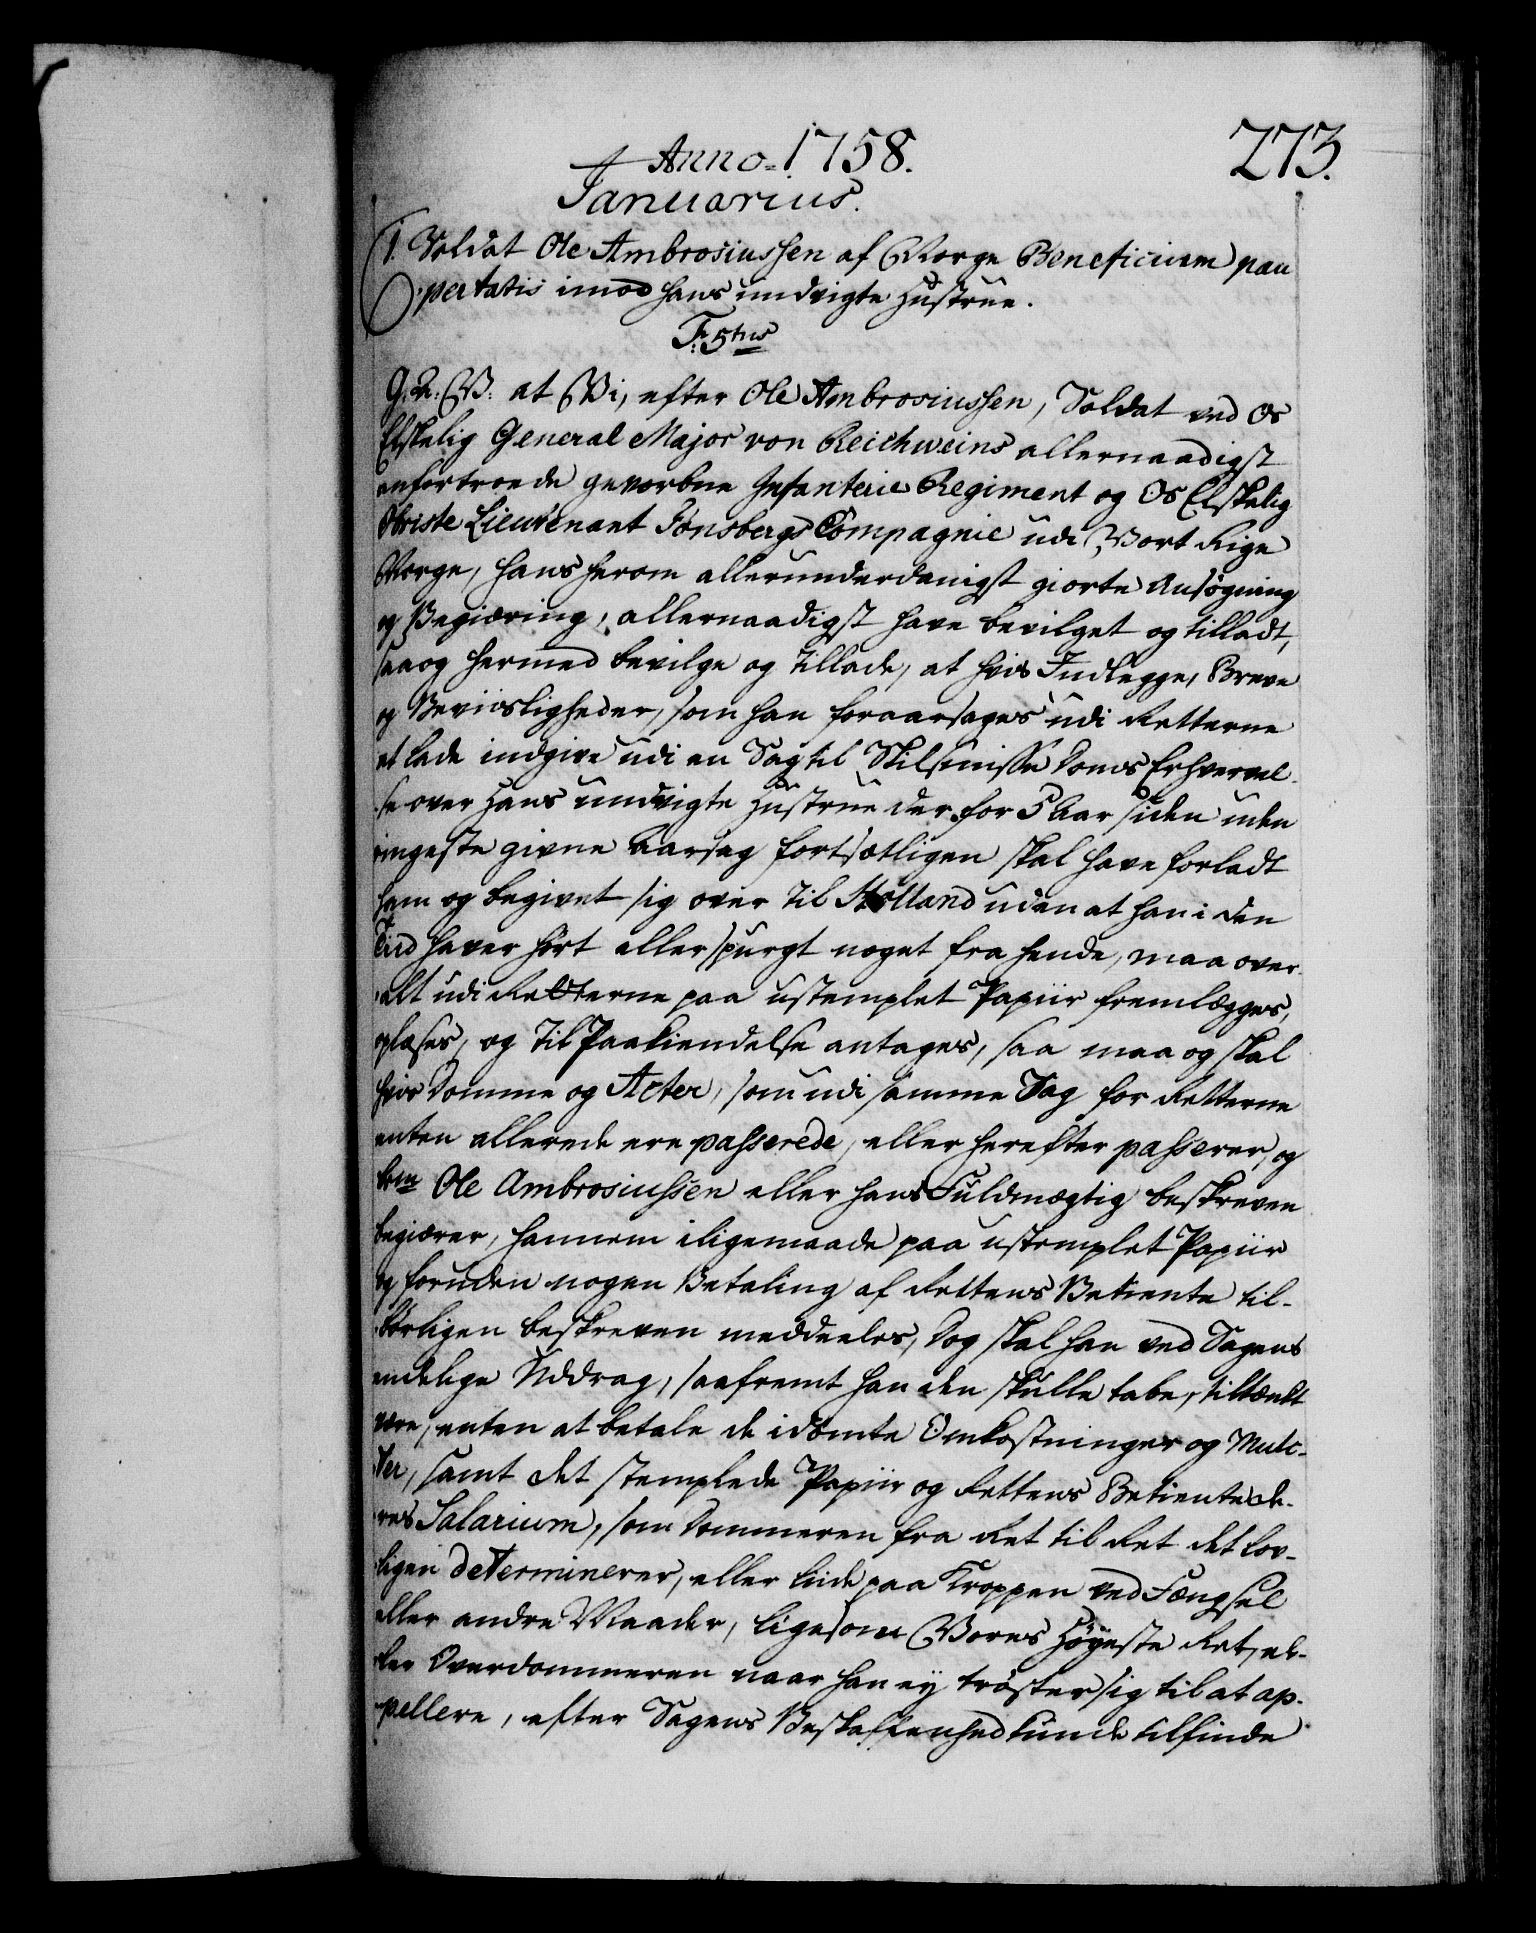 Anno 1758.
273.
Januarius.
1. Soldat Ole Ambrosiussen af Norge Beneficium pau
pertatis imod hans undvigte Hustrue.
F: 5te
G. A. V: at Vi, efter Ole Ambrosiussen, Soldat ved Os
Elskelig General Major von Reichweins allernaadigst
anfortroede gevorbne Infanterie Regiment og Os Elskelig
Obriste Lieutenant Tønsbergs Compagnie udi Vort Rige
Norge, hans herom allerunderdanigst giorte Ansøgning
og Begiæring, allernaadigst have bevilget og tilladt,
saa og hermed bevilge og tillade, at hvis Indlegge, Breve
og Beviisligheder, som han foraarsages udi Retterne
at lade indgive udi en Sag til Skilsmisse Doms Erhvervel-
se over hans undvigte Hustrue der for 5 Aar siden uden
ringeste givne Aarsag fortsætligen skal have forladt
ham og begivet sig over til Holland uden at han i den
Tiid haver hørt eller spurgt noget fra hende, maa over-
alt udi Retterne paa ustemplet Papiir fremlægges,
oplæses, og til Paakiendelse antages, saa maa og skal
hvis Domme og Acter, som udi samme Sag for Retterne
enten allerede ere passerede, eller herefter passerer, og
bem Ole Ambrosiussen eller hans Fuldmægtig beskreven
begiærer, hannem iligemaade paa ustemplet Papiir
og foruden nogen Betaling af Rettens Betiente til-
børligen beskreven meddeeles, Dog skal han ved Sagens
endelige Uddrag, saafremt han den skulle tabe, tiltænkt
være, enten at betale de idømte Omkostninger og Mulc-
ter, samt det stemplede Papiir og Rettens Betiente de-
res Salarium, som Dommeren fra Ret til Ret det lov-
ligen determinerer, eller liide paa Kroppen ved Fængsel
eller andre Maader, ligesom Vores Høyeste Ret, el-
ler Overdommeren naar han ey trøster sig til at ap-
pellere, efter Sagens Beskaffenhed kunde tilfinde